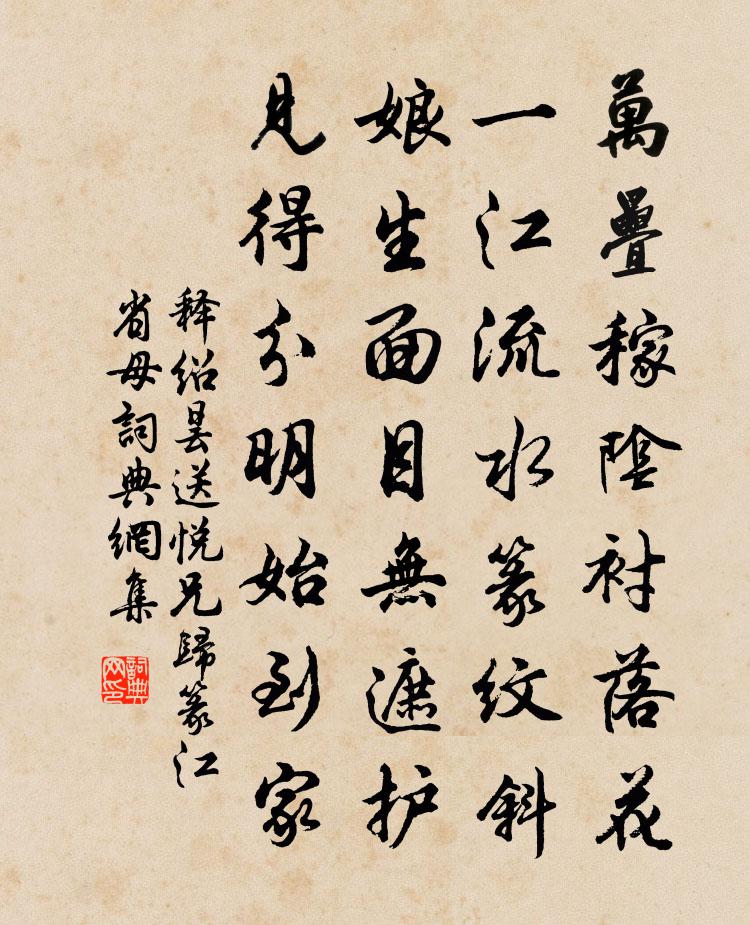 萬疊稼陰衬落花
一江流水篆紋斜
娘生面目無遮护
見得分明始到家
释绍昙送悦兄歸篆江
省母詞典網集
詞典网印